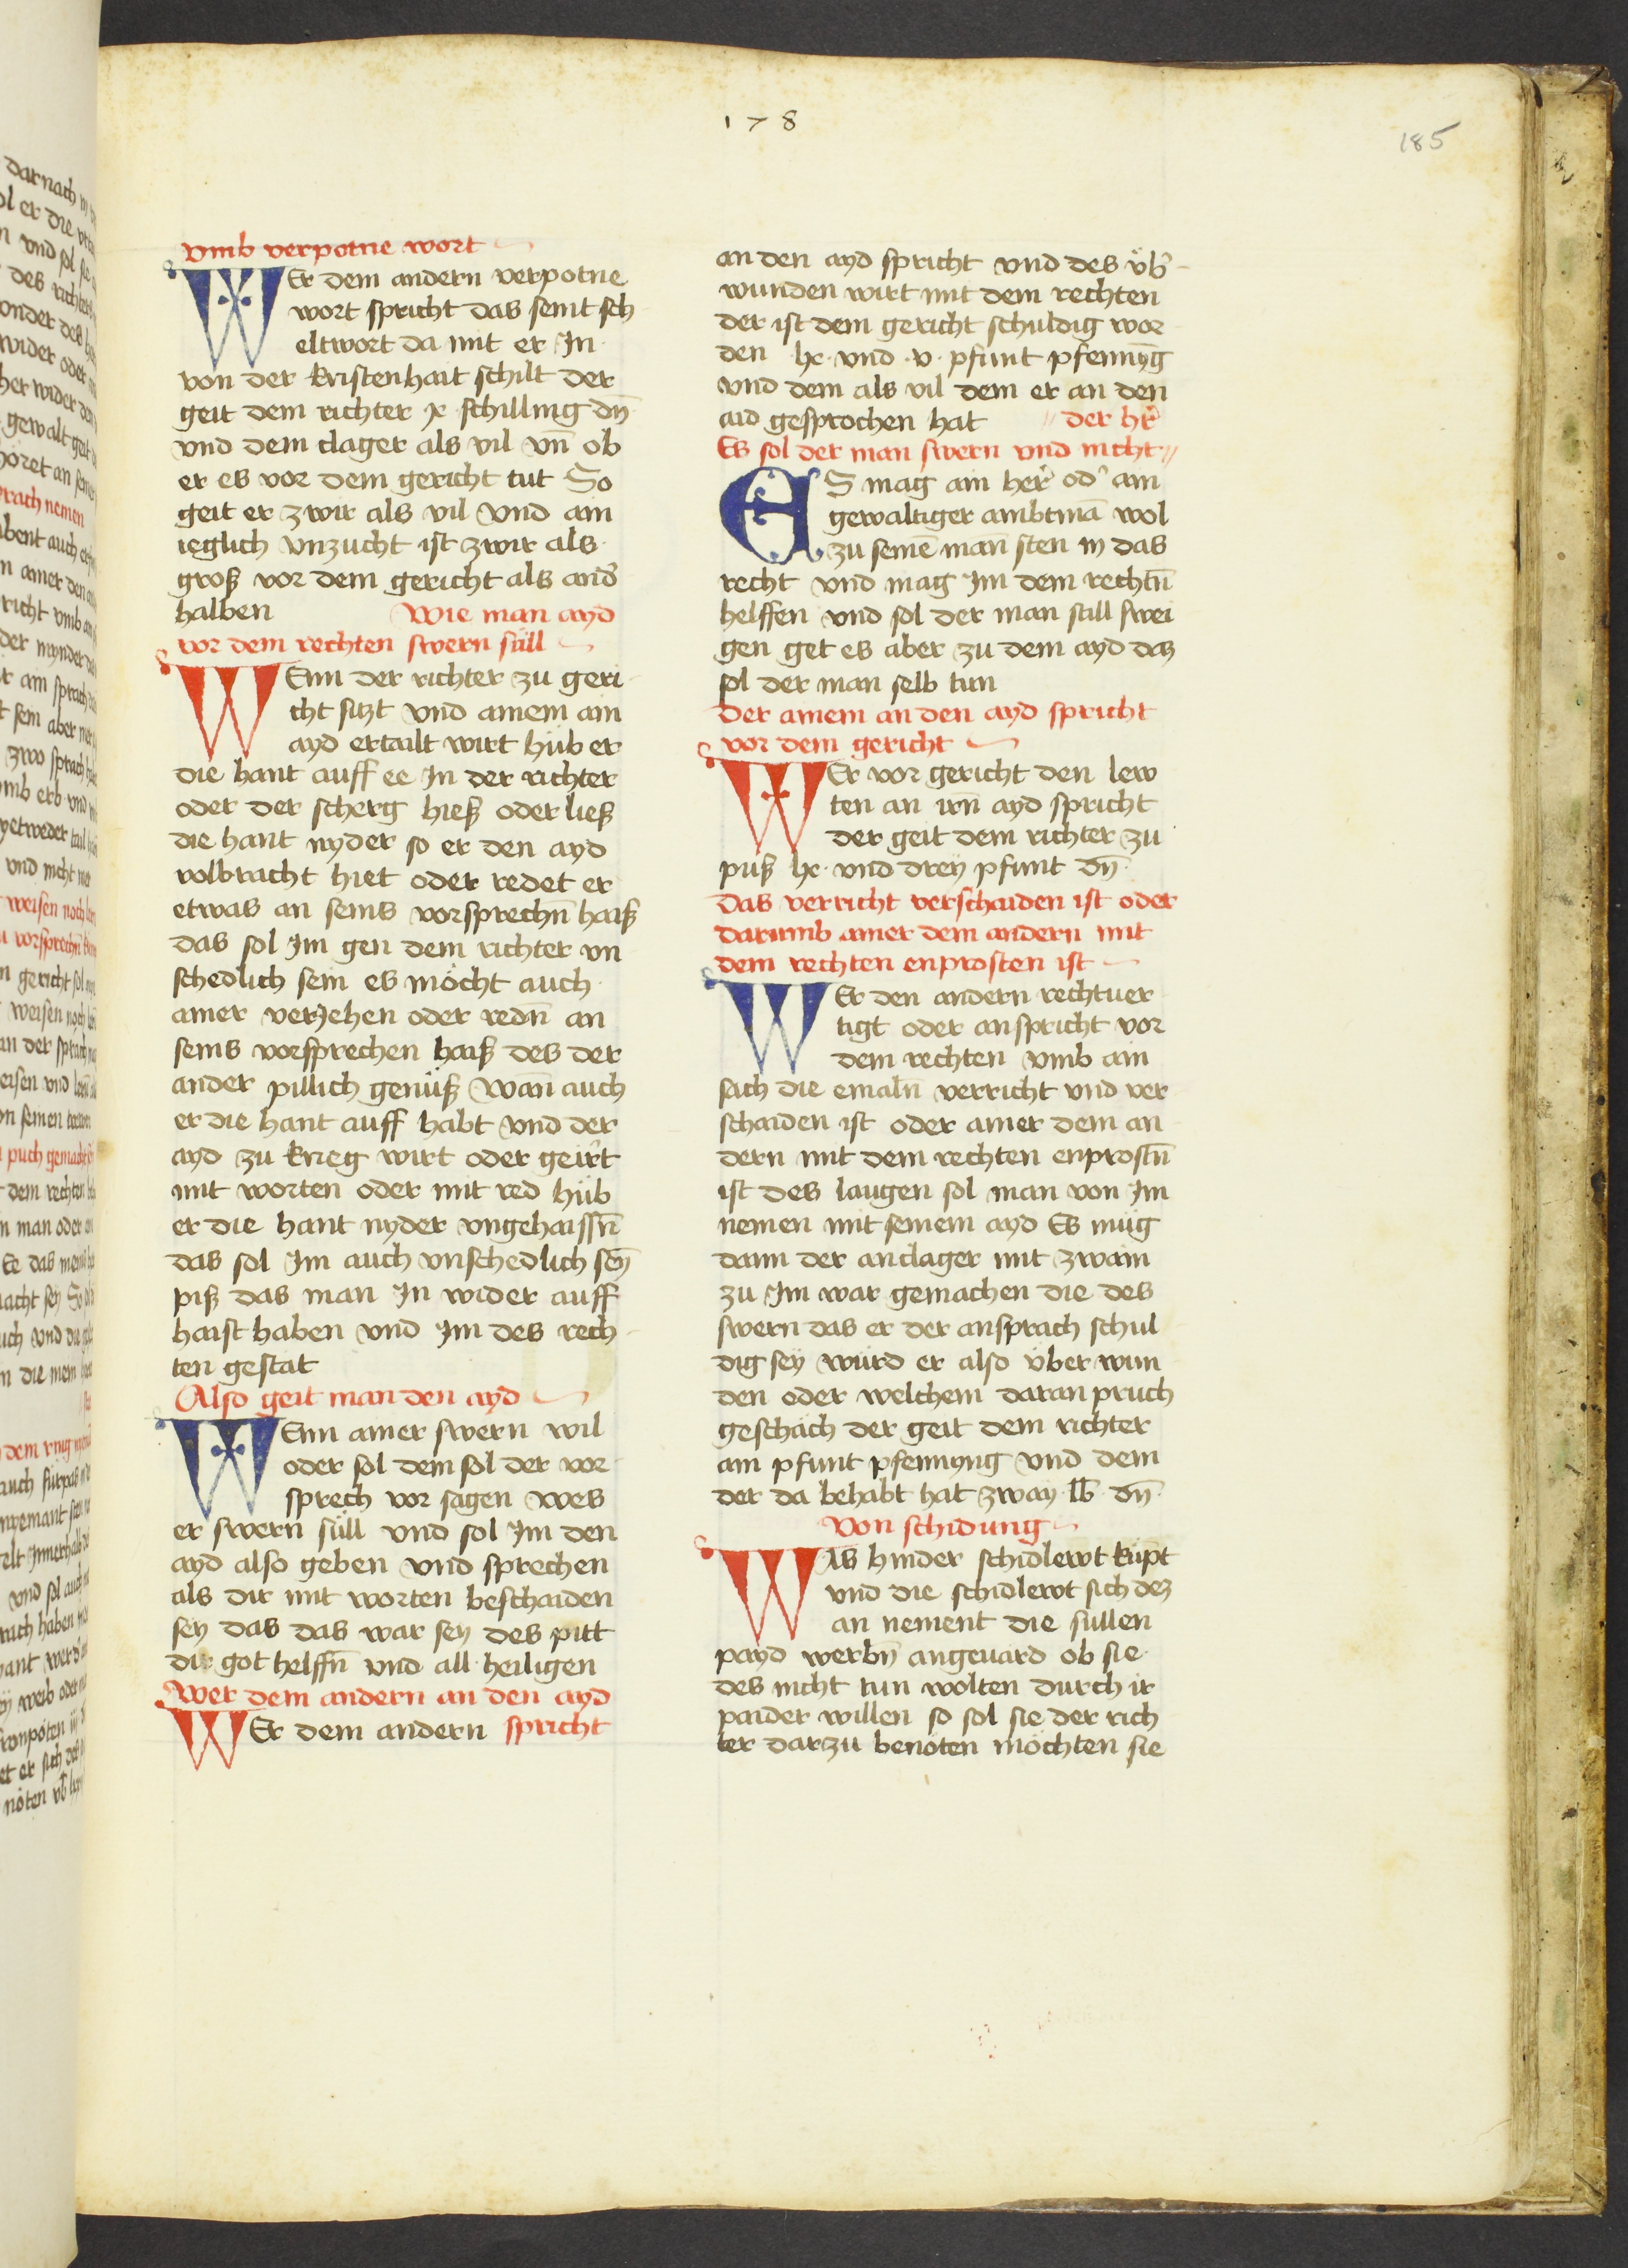 178
185
vmb verpotne wort
WEr dem andern verpotne
wort spricht das seint sch
eltwort da mit er In
von der kristenhait schilt der
geit dem richter x schilling dn̄
vnd dem clager als vil vn̄ ob
er es vor dem gericht tut So
geit er zwir als vil Vnd ain
ieglich vnzucht ist zwir als
groß vor dem gericht als and̛
halben
Wie man ayd
vor dem rechten swern süll
WEnn der richter zu geri
cht sitzt vnd ainem ain
ayd ertailt wirt hüb er
die hant auff ee In der richter
oder der scherg hieß oder ließ
die hant nyder so er den ayd
volbracht hiet oder redet er
etwas an seins vorsprechn̄ haiß
das sol Im gen dem richter vn
schedlich sein es möcht auch
ainer verJehen oder redn̄ an
seins vorsprechen haiß des der
ander pillich genüß Wan̄ auch
er die hant auff habt vnd der
ayd zu krieg wirt oder geirt
mit worten oder mit red hüb
er die hant nyder vngehaissn̄
das sol Im auch vnschedlich seȳ
piß das man In wider auff
haist haben vnd Im des rech
ten gestat
Also geit man den ayd
WEnn ainer swern wil
oder sol dem sol der vor
sprech vor sagen wes
er swern süll vnd sol Im den
ayd also geben vnd sprechen
als dir mit worten beschaiden
sey das das war sey des pitt
dir got helffn̄ vnd all heiligen
Wer dem andern an den ayd
WEr dem andern spricht
an den ayd spricht vnd des vb̛
wunden wirt mit dem rechten
der ist dem gericht schuldig wor
den lxx vnd v pfunt pfennyḡ
vnd dem als vil dem er an den
aid gesprochen hat
der hr̛
Es sol der man swern vnd nicht
ES mag ain her̛ od̛ ain
gewaltiger ambtmā wol
zu seinē man̄ sten in das
recht vnd mag Im dem rechtn̄
helffen vnd sol der man still swei
gen get es aber zu dem ayd daz
sol der man selb tun
Der ainem an den ayd spricht
vor dem gericht
WEr vor gericht den lew
ten an irn̄ ayd spricht
der geit dem richter zu
puß lx vnd drey pfunt dn̄
Das verricht verschaiden ist oder
darumb ainer dem andern mit
dem rechten enprosten ist
WEr den andern rechtuer
tigt oder anspricht vor
dem rechten vmb ain
sach die emaln̄ verricht vnd ver
schaiden ist oder ainer dem an
dern mit dem rechten enprostn̄
ist des laugen sol man von Im
nemen mit seinem ayd Es müg
dann der anclager mit zwain
zu Im war gemachen die des
swern das er der ansprach schul
dig sey wurd er also über wun
den oder welchem daran pruch
geschäch der geit dem richter
ain pfunt pfennyng vnd dem
der da behabt hat zway lb dn̄
Von schidung
WAs hinder schidlewt küpt
vnd die schidlewt sich dez
an nement die süllen
payd werbn̄ angeuard ob sie
des nicht tun wolten durch ir
paider willen so sol sie der rich
ter darzu benöten möchten sie